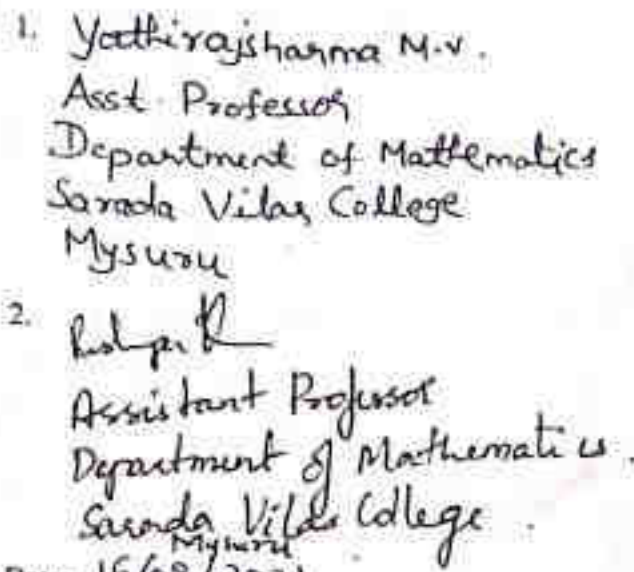 1. Yathirajsharma M.V.
Asst. Professor
Department of Mathematics
Sarada Vilas College
Mysuru
2.
Assistant Professor
Department of Mathematics.
Sarada Vilas College.
Mysuru